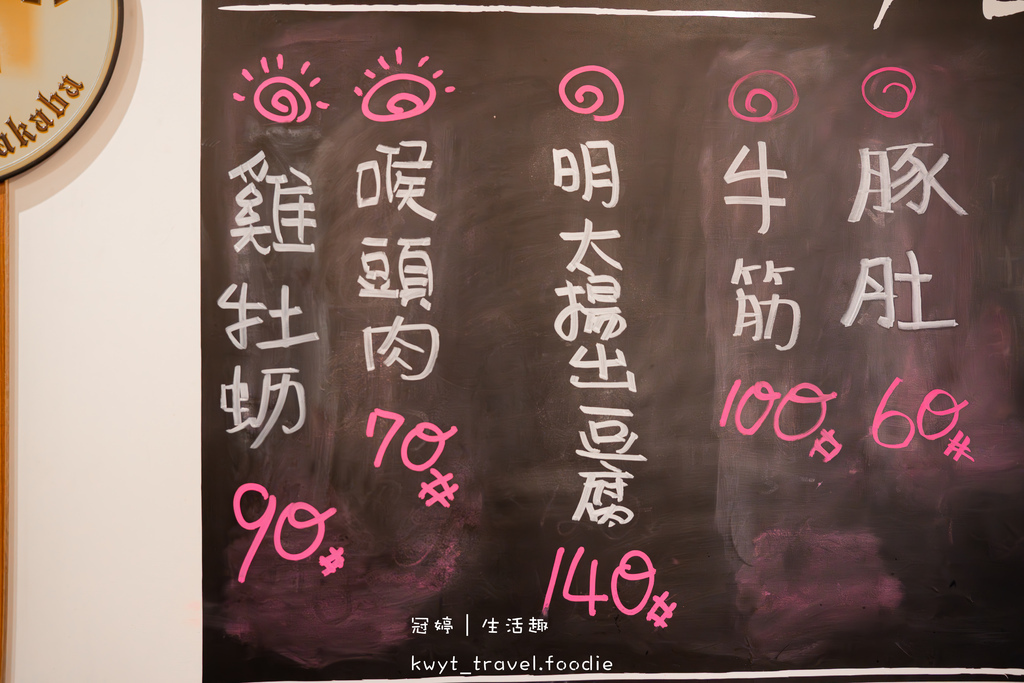 豚肚
60#
牛筋
100#
明太揚出豆腐
140#
喉頭肉
70#
雞牡蛎
90#
akaba
冠婷｜生活趣
kwyt_travel.foodie